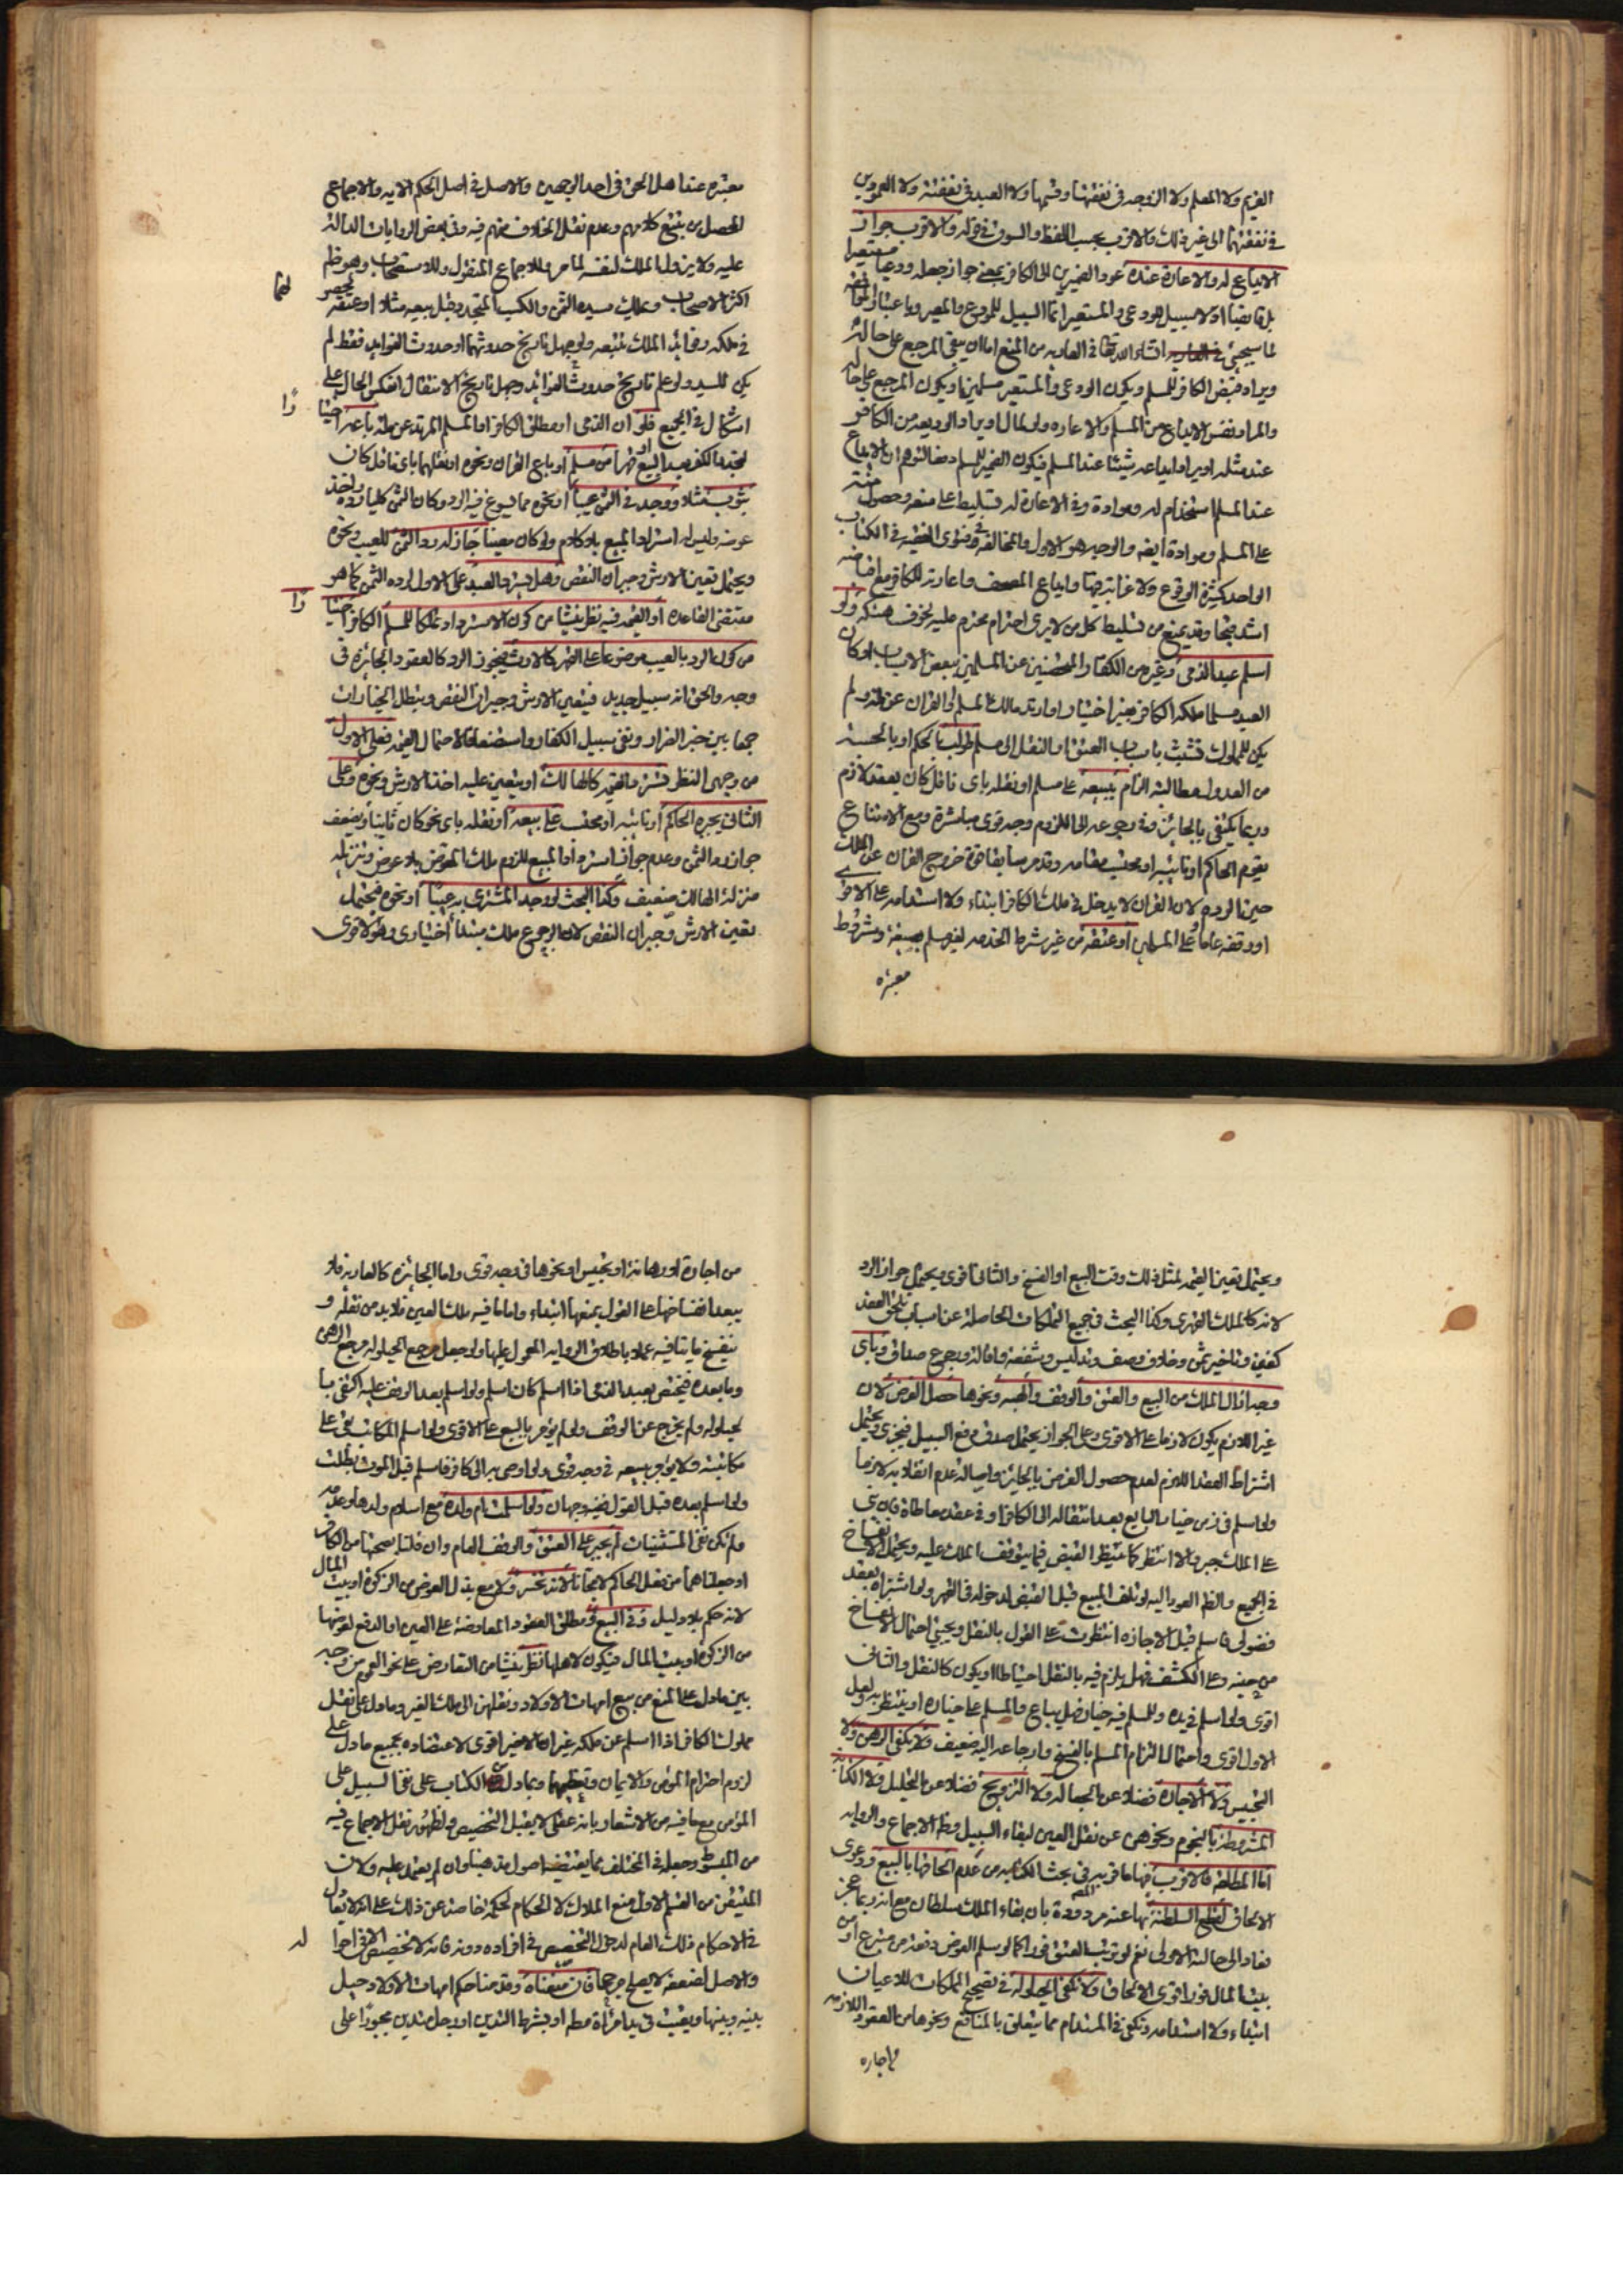 الغريم ولا المعلم ولا الزوجه في نفقتها وقسمها ولا العبد في نفقته ولا العمودين
في نفقتهما الى غير ذلك والاقرب بحسب اللفظ والسوق في قوله والاقرب جواز
الايداع له والاعارة عنده عود الضميرين الى الكافر بمعنى جواز جعله ودعيا او مستعيرا
لما سيجئ انشاء الله تعالى في العاريه من المنع اما ان يبقى المرجع على حاله
ويراد قبض الكافر للمسلم ويكون الودعي والمستعير مسلمين او يكون المرجع على حاله
والمراد نفس الايداع من المسلم والاعاره ولو لمال او يراد الوديعه من الكافر
عند مثله او يراد ايداعه شيئا عند المسلم فيكون الضمير للمسلم دفعا لتوهم ان الايداع
عند المسلم استخدام له وموادة وفي الاعارة له تسليط على منعه وحصول منته
على المسلم وموادة ايضه والوجه هو الاول والمخالفة في الكتاب
الواحد كثيرة الوقوع ولا غرابة فيها وايداع المصحف واعارته للكافر مع
اشد قبحا وقد يمنع من تسليط كل من لا يرى احترام محترم عليه لخوف هتكه ولو
اسلم عبد الذمي وغيره من الكفار والمحصنين عن المسلمين ببعض الاسباب او كان
العبد مسلما ملكه الكافر بغير اختيار او ارتد مالك المسلم او القران عن ملته ولم
يكن للمملوك تشبث باسباب العتق او النقل الى مسلم طولب بالحكم او بالحسبة
من العدول مطالبة الزام ببيعه على مسلم او نقله باي ناقل كان بعقد لازم
وربما يكتفى بالجائز مع رجوعه الى اللزوم وجه قوي مباشرة ومع الامتناع
يقوم الحاكم او نائبه او محتسب مقامه وقد مر سابقا قوة خروج القران عن الملك
حين الرده لان القران لا يدخل في ملك الكافر ابتداء ولا استدامه على الاقوى
او وقفه عاما على المسلمين او عتقه من غير شرط الخدمه لغير مسلم بصيغة وشروط
معتبره
معتبره عند اهل الحق في احد الوجهين والاصل في اصل الحكم الايه والاجماع
المحصل من تتبع كلامهم وعدم نقل الخلاف منهم فيه وفي بعض الروايات الدالة
عليه ولا يزول الملك لنفسه لما مر وللاجماع المنقول وللاستصحاب وهو ظم
اكثر الاصحاب ويملك سيده الثمن والكسب المتجدد قبل بيعه مثلا او عتقه لحصوله
في ملكه وفوائد الملك تتبعه ولو جهل تاريخ حدوثهما او حدوث الفوايد فقط لم
يكن للسيد ولو علم تاريخ حدوث الفوائد وجهل تاريخ الانتقال انعكس الحال على
اشكال في الجميع فلو ان الذمي او مطلق الكافر او المسلم المرتد عن ملة باعه اختيارا
لتجدد الكفر بعد البيع او قهرا من مسلم او باع القران ونحوه او نقلهما باي ناقل كان
بثوب مثلا ووجد في الثمن عيبا او نحوه مما يسوغ فيه الرد وكان الثمن كليا رده واخذ
عوضه وليس له استرداد المبيع بلا كلام ولو كان معينا جاز له رد الثمن للعيب ونحوه
ويحتمل تعين الارش وجبران النقص وهل يسترد العبد على الاول لرده الثمن كما هو
مقتضى القاعده او القيمه فيه نظر ينشا من كون الاسترداد تملكا للمسلم الكافر اختيارا
من كون الرد بالعيب موضوعا على القهر كالارث فيجوز الرد كالعقود الجائزه في
وجه والحق انه سبيل جديد فيتعين الارش وجبران النقص ويبطل الخيارات
جمعا بين خبر الضرار ونفي سبيل الكفار واستضعافا لاحتمال القيمه فعلى الاول
من وجهي النظر تسترد القيمه كالهالك او يتعين عليه اخذ الارش ونحوه وعلى
الثاني يجبره الحاكم او نائبه او محتسب على بيعه او نقله باي نحو كان ثانيا ويضعف
جواز رد الثمن وعدم جواز استرداد المبيع للزوم ملك المعوض بلا عوض وتنزيله
منزلة الهالك ضعيف وكذا البحث لو وجد المشتري به عيبا او نحوه فيحتمل
تعين الارش وجبران النقص لان الرجوع ملك مبتدا اختياري وهو الاقوى
ويحتمل تعين القيمه لمثل ذلك وقت البيع او الفسخ والثاني اقوى ويحتمل جواز الرد
لانه كالملك القهري وكذا البحث في جميع التملكات الحاصلة عن اسباب تلحق العقد
كغبن وتاخير ثمن وخلاف وصف وتدليس وشفعة واقالة ورجوع صداق وباي
وجه ازال الملك من البيع والعتق والوقف والهبه ونحوها حصل الغرض لان
غير اللازم يكون لازما على الاقوى وعلى الجواز يحتمل صدق دفع السبيل فيجزي ويحتمل
اشتراط العقد اللازم لعدم حصول الغرض بالجائز واصالة عدم انقلابه لازما
ولو اسلم في زمن خيار البايع بعد انتقاله الى الكافر او في عقد معاطاة
على الملك جبر والا انتظر كما ينتظر القبض فيما يتوقف الملك عليه ويحتمل الانفساخ
في الجميع والظم العود اليه لو تلف المبيع قبل القبض لدخوله في القهر ولو اشتراه بعقد
فضولي فاسلم قبل الاجازه انتظرت على القول بالنقل ويجيئ احتمال الانفساخ
من حينه وعلى الكشف فهل يلزم فيه بالنقل احتياطا او يكون كالنقل والثاني
اقوى ولو اسلم في يده وللمسلم فيه خيار فهل يباع والمسلم على خياره او ينتظر به ولعل
الاول اقوى واحتمال الزام المسلم بالفسخ وارجاعه اليه ضعيف ولا يكفي الرهن ولا
التحبيس ولا الاجارة فضلا عن الجعالة ولا التزويج فضلا عن التحليل ولا الكتابة
المشروطة بالنجوم ونحوهن عن نقل العين لبقاء السبيل وظم الاجماع والروايه
اما المطلقه فالاقرب فيها ما قربه في بحث الكتابه من عدم الحاقها بالبيع ودعوى
الالحاق لقطع السلطنة بها عنه مردودة بان بقاء الملك سلطان مع انه ربما عجز
فعاد الى حاله الاولى نعم لو ترتب العتق فورا كما لو سلم العوض دفعة من متبرع او من
بيت المال فورا قوي الالحاق ولا تكفي الحيلوله في تصحيح المملكات للاعيان
ابتداء ولا استدامه وتكفي في المستدام مما يتعلق بالمنافع ونحوها من العقود اللازمه
من اجاره
من اجارة او رهانة او تحبيس او نحوها في وجه قوي واما الجائزه كالعاريه فلا
يبعد انفساخها على القول بمنعها ابتداء واما ما فيه ملك العين فلا بد من نقله و
ينفسخ ما ينافيه عملا باطلاق الروايه المعول عليها ولو جعل مرجع الحيلوله مرجع الرهن
وما بعده فيختص بعبد الذمي اذا اسلم كان اسلم ولو اسلم بعد الوقف عليه اكتفي بها
لحيلوله ولم يخرج عن الوقف ولم يؤمر بالبيع على الاقوى ولو اسلم المكاتب بقي على
مكاتبته ولا يؤمر ببيعه في وجه قوي ولو اوصى به الى كافر فاسلم قبل الموت بطلت
ولو اسلم بعده قبل القبول ففيه وجهان ولو اسلمت ام ولده مع اسلام ولدها وعدمه
ولم تكن في المستثنيات لم يجبر على العتق والوقف العام وان قلنا بصحتها من الكافر
او جعلناهما من فعل الحاكم لا مجانا لانه تخسير ولا مع بذل العوض من الزكوة او بيت المال
لانه حكم بلا دليل وفي البيع ومطلق العقود المعاوضة على العين او الدفع لعوضها
من الزكوة او بيت المال فيكون لاهلها نظر ينشا من التعارض على نحو العموم من وجه
بين ما دل على المنع من بيع امهات الاولاد ونقلهن الى ملك الغير وما دل على نقل
مملوك الكافر اذا اسلم عن ملكه غير ان الاخير اقوى لاعتضاده بجميع ما دل على
لزوم احترام المؤمن والايمان وتعظيمهما وبما دل من الكتاب على نفي السبيل على
المؤمن مع ما فيه من الاشعار بانه عقلي لا يقبل التخصيص ولظهور نقل الاجماع فيه
من المبسوط وجعله في المختلف مما يقتضيه اصول مذهبنا وان لم يعتمد عليه ولان
المتيقن من القسم الاول منع الملاك لا الحكام لحكمة خاصة عن ذلك على انه لا يقال
في الاحكام ذلك العام لدخول التخصيص في افراده دونه فانه لا تخصيص الا في احوا له
والاصل لضعفه لا يصلح مرجحا فان منعناه وقد منا حكم امهات الاولاد حيل
بينه وبينها وبقيت في يد امرأة مطم او بشرط التدين او رجل متدين مجبورا على